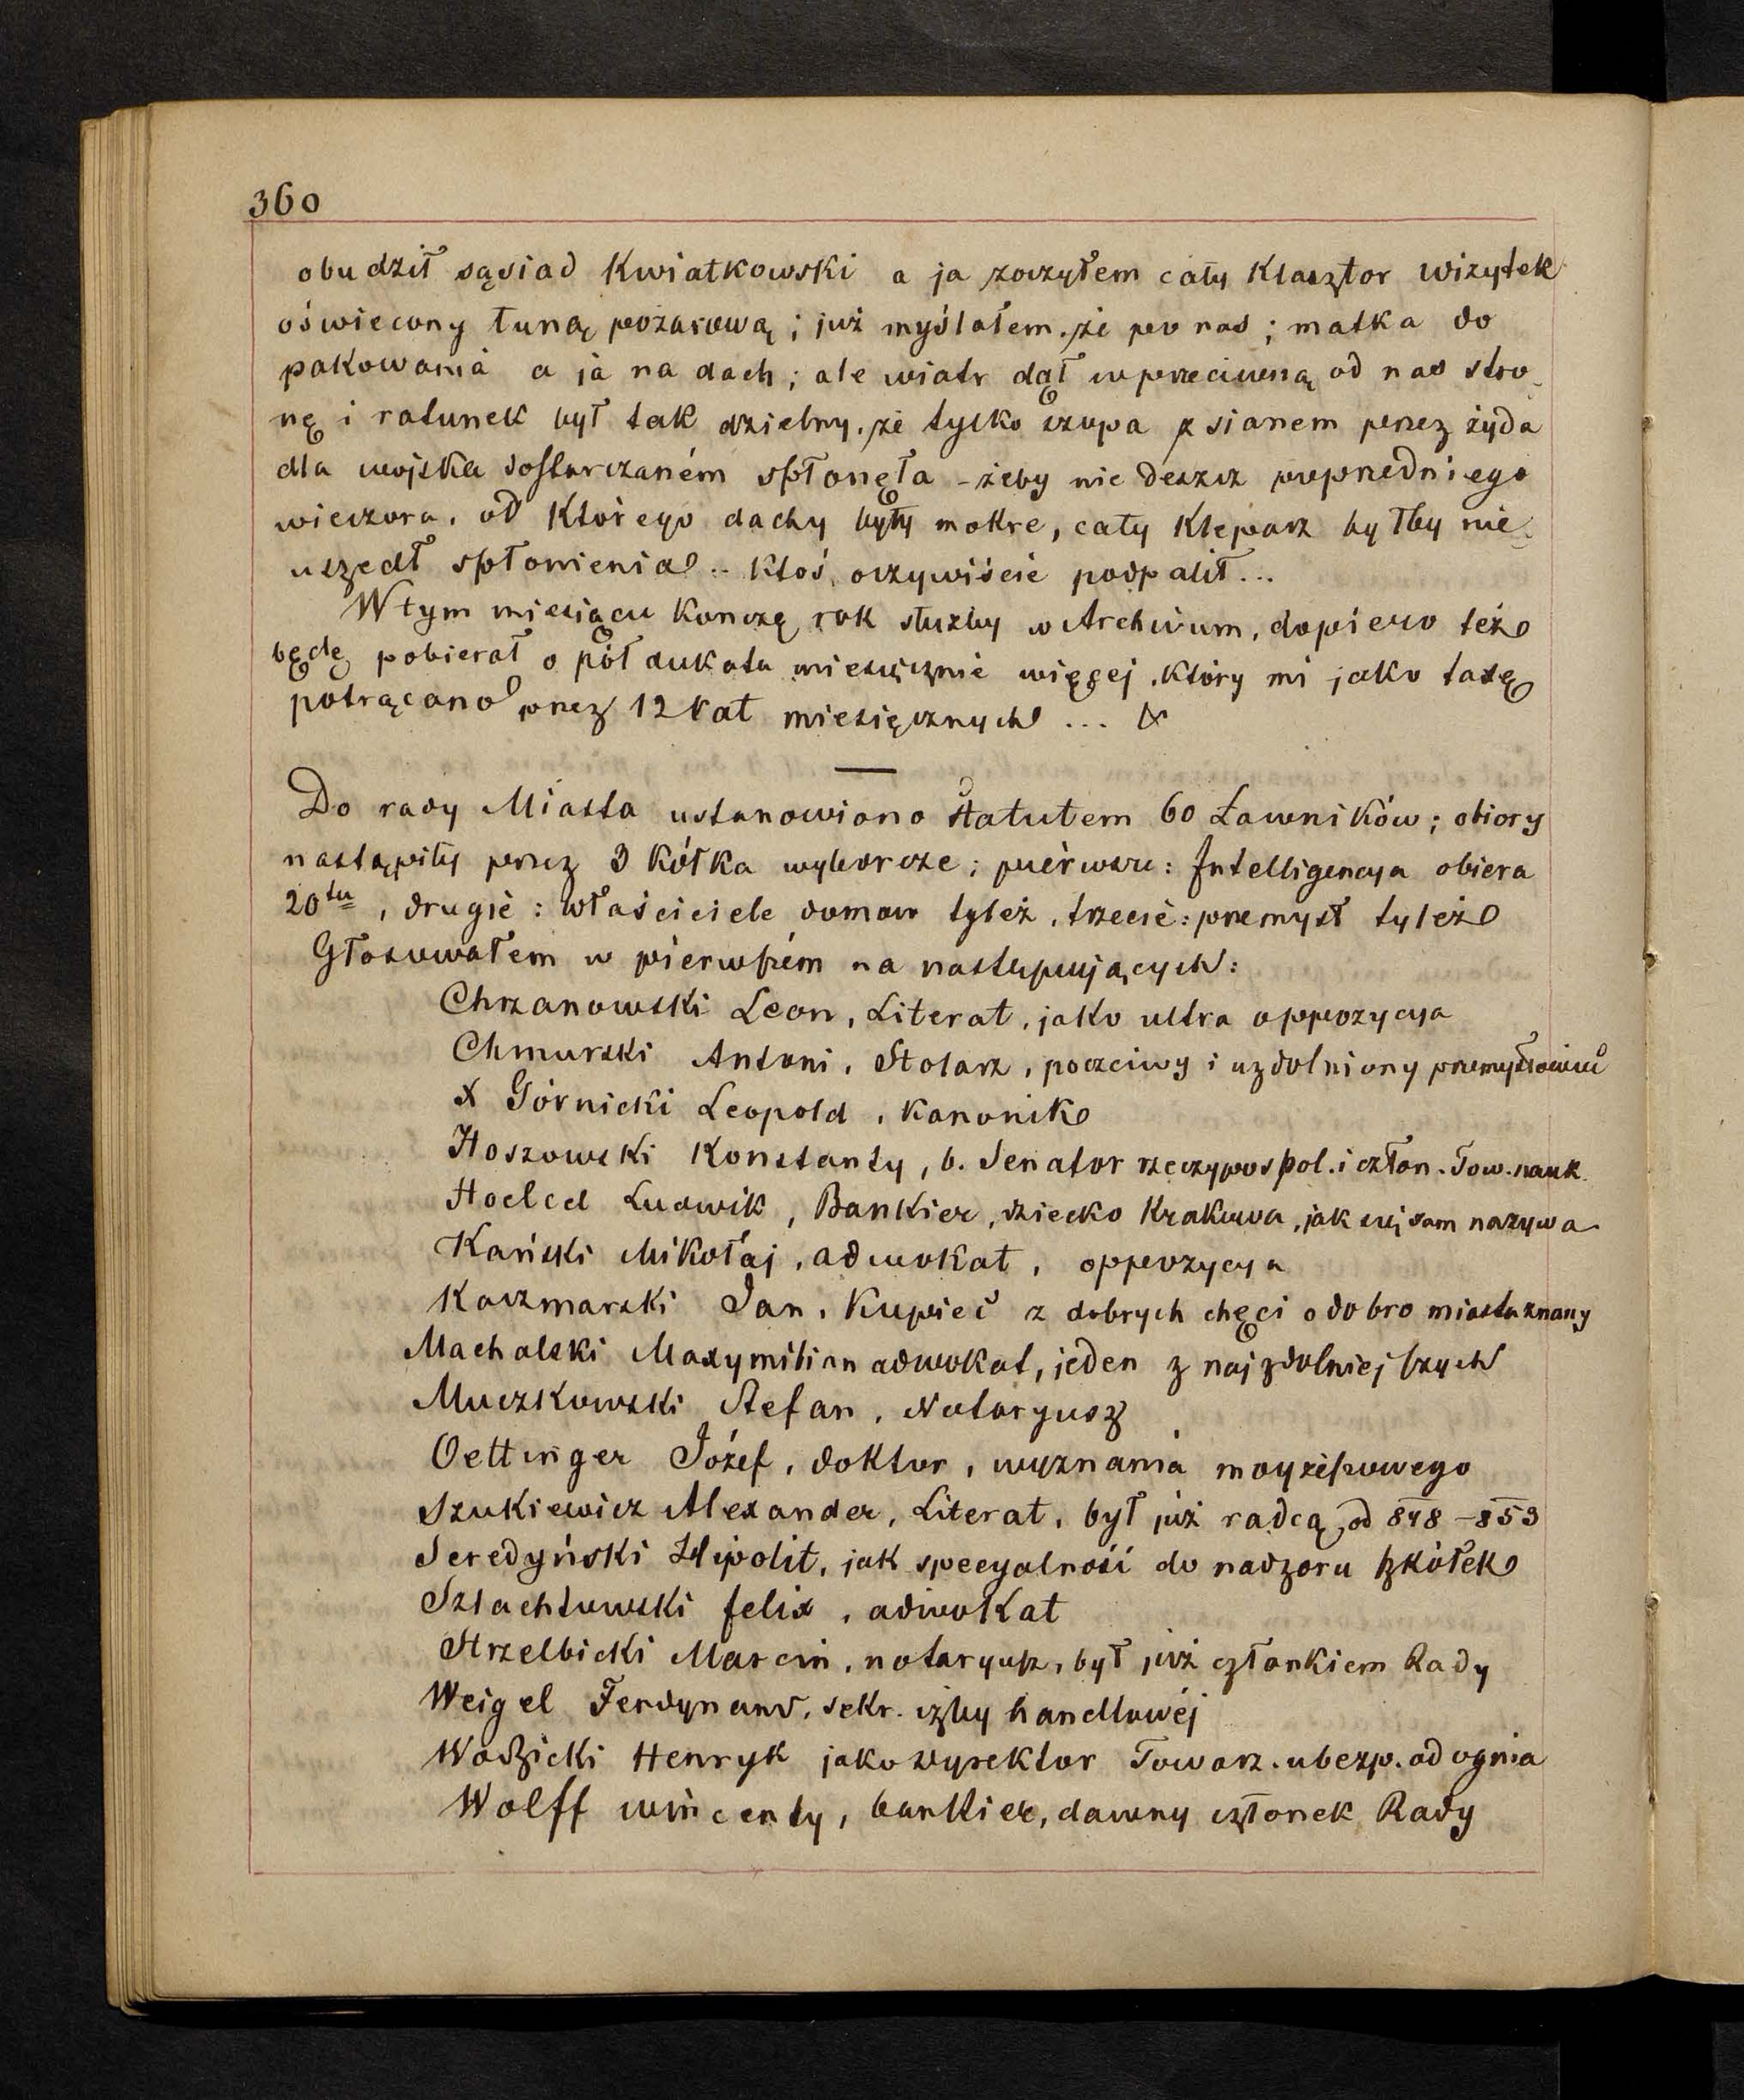 360
obudził sąsiad Kwiatkowski a ja zoczyłem cały Klasztor wizytek
oświecony łuną pożarową; już myślałem, że po nas; matka do
pakowania a ja na dach; ale wiatr dął w przeciwną od nas stro-
nę i ratunek był tak dzielny, że tylko szopa z sianem przez żyda
dla wojska dostarczaném spłonęła - żeby nie deszcz poprzedniego
wieczora, od Którego dachy były mokre, cały Kleparz byłby nie
uszedł spłonienia .. Ktoś, oczywiście podpalił...
W tym miesiącu Kończę rok służby w Archivum, dopiero też
będę pobierał o pół dukata miesięcznie więcej, który mi jako taxę
potrącano przez 12 rat miesięcznych ...
Do rady Miasta ustanowiono Statutem 60 Ławników; obiory
nastąpiły przez 3 Kółka wyborcze; piérwsze: Intelligencya obiera
20tu, drugie: właściciele domow tyleż, trzecie: przemysł tyleż
Głosowałem w pierwszém na nastupujących:
Chrzanowski Leon, Literat, jako ultra oppozycya
Chmurski Antoni, Stolarz, poczciwy i uzdolniony przemysłowiec
X Górnicki Leopold, Kanonik
Hoszowski Konstanty, b. Senator rzeczypospol. i człon. Tow. nauk.
Hoelcel Ludwik, Bankier, dziecko Krakowa, jak się sam nazywa
Kański Mikołaj, adwokat, oppozycya
Kaczmarski Jan, Kupiec z dobrych chęci o dobro miasta znany
Machalski Maxymilian adwokat, jeden z najzdolniejszych
Muczkowski Stefan, Notaryusz
Oettinger Józef, doktor, wyznania mojżeszowego
Szukiewicz Alexander, Literat, był już radcą od 848 - 853
Seredyński Hipolit, jak specyalność do nadzoru szkółek
Szlachtowski felix, adwokat
Strzelbicki Marcin, notaryusz, był już członkiem Rady
Weigel Ferdynand, sekr. izby handlowéj
Wodzicki Henryk jako dyrektor Towarz. ubezp. od ognia
Wolff wincenty, bankier, dawny członek Rady